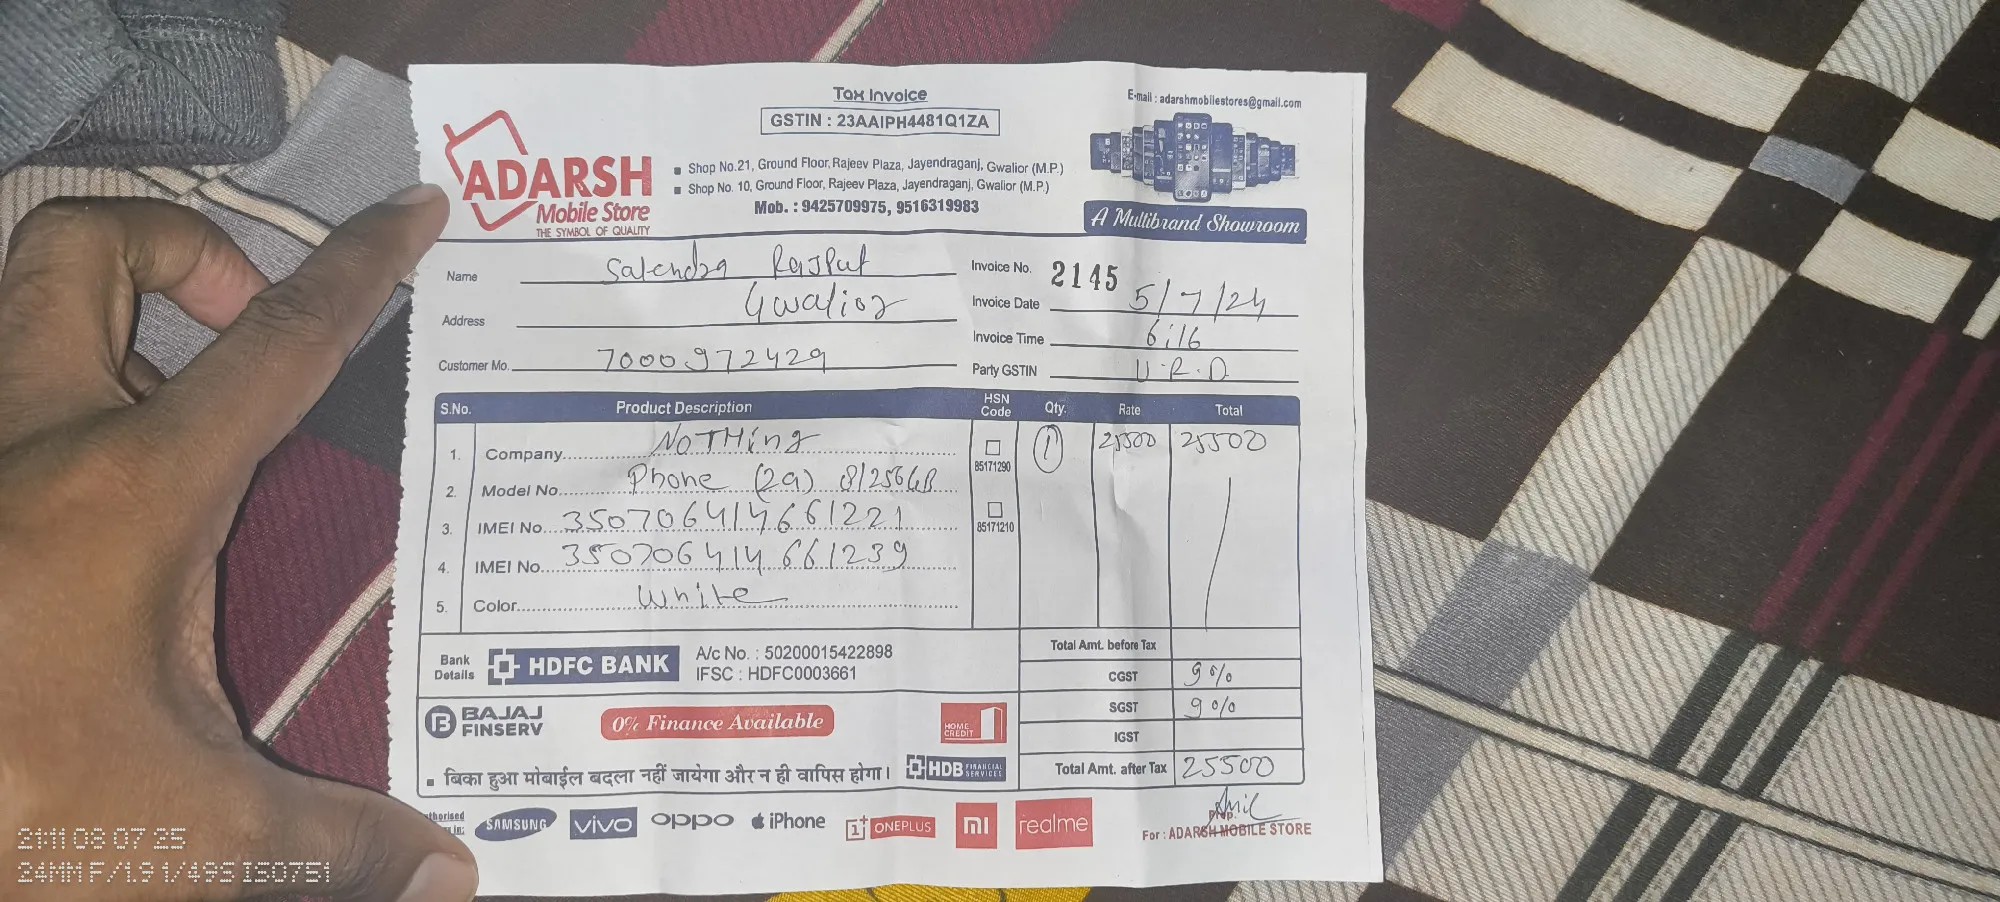 Tax Invoice
GSTIN : 23AAIPH4481Q1ZA
E-mail : adarshmobilestores@gmail.com
ADARSH
Mobile Store
THE SYMBOL OF QUALITY
Shop No.21, Ground Floor, Rajeev Plaza, Jayendraganj, Gwalior (M.P.)
Shop No. 10, Ground Floor, Rajeev Plaza, Jayendraganj, Gwalior (M.P.)
Mob. : 9425709975, 9516319983
A Multibrand Showroom
Name Satendra Rajput
Address Gwalior
Customer Mo. 7000972429
Invoice No. 2145
Invoice Date 5/7/24
Invoice Time 6:16
Party GSTIN U.R.D
S.No. Product Description HSN Code Qty. Rate Total
1. Company NOTHing 85171290 1 25500 25500
2. Model No. Phone (2a) 8/256GB
3. IMEI No. 350706414661221 85171210
4. IMEI No. 350706414661239
5. Color White
Bank Details HDFC BANK
A/c No. : 50200015422898
IFSC : HDFC0003661
Total Amt. before Tax
CGST 9%
SGST 9%
IGST
Total Amt. after Tax 25500
BAJAJ FINSERV
0% Finance Available
HOME CREDIT
बिका हुआ मोबाईल बदला नहीं जायेगा और न ही वापिस होगा।
HDB FINANCIAL SERVICES
SAMSUNG vivo oppo iPhone 1+ ONEPLUS MI realme
Anil
Prop.
For : ADARSH MOBILE STORE
21:11 08 07 25
24MM F/1.9 1/49S ISO751